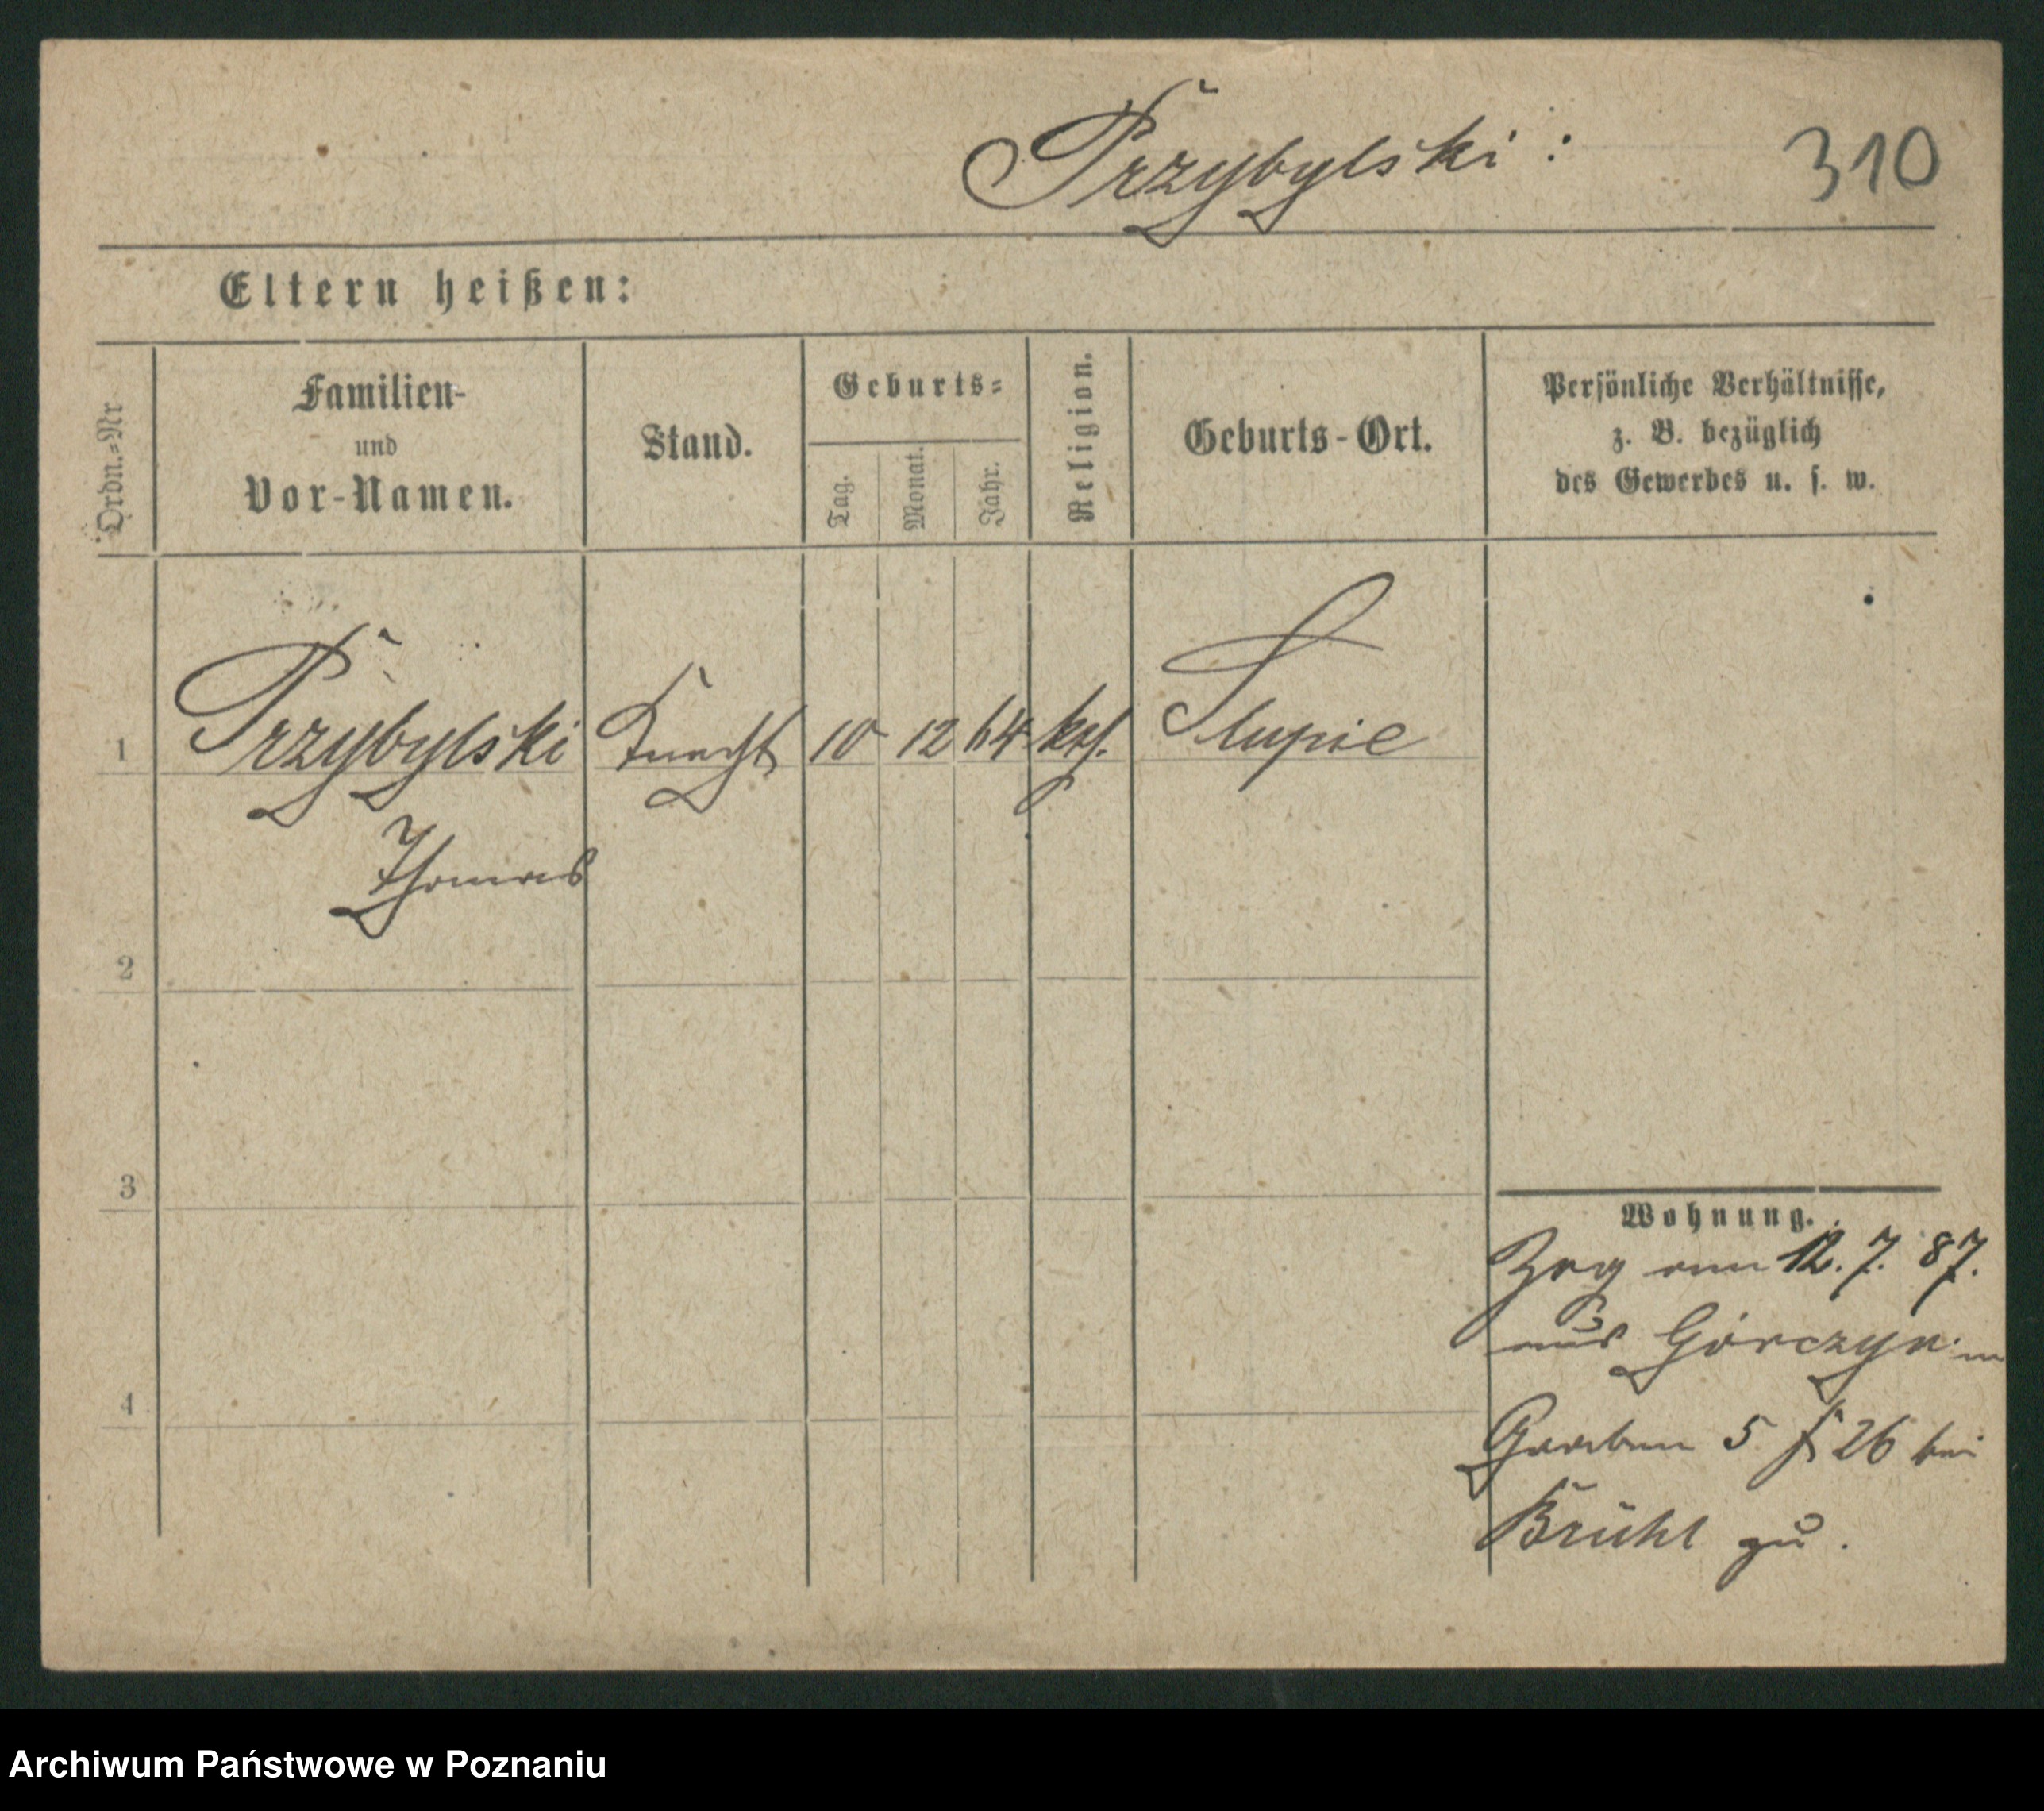 Przybylski :
310
Eltern heißen:
Ordn.-Nr
Familien-
und
Vor-Namen.
Stand.
Geburts-
Tag.
Monat.
Jahr.
Religion.
Geburts-Ort.
Persönliche Verhältnisse,
z. B. bezüglich
des Gewerbes u. s. w.
1 Przybylski Knecht 10 12 64 kth. Slupie
Thomas
2
3
4
Wohnung.
Zog am 12. 7. 87.
aus Górczyn
Graben 5 26 bei
Brühl zu.
Archiwum Państwowe w Poznaniu